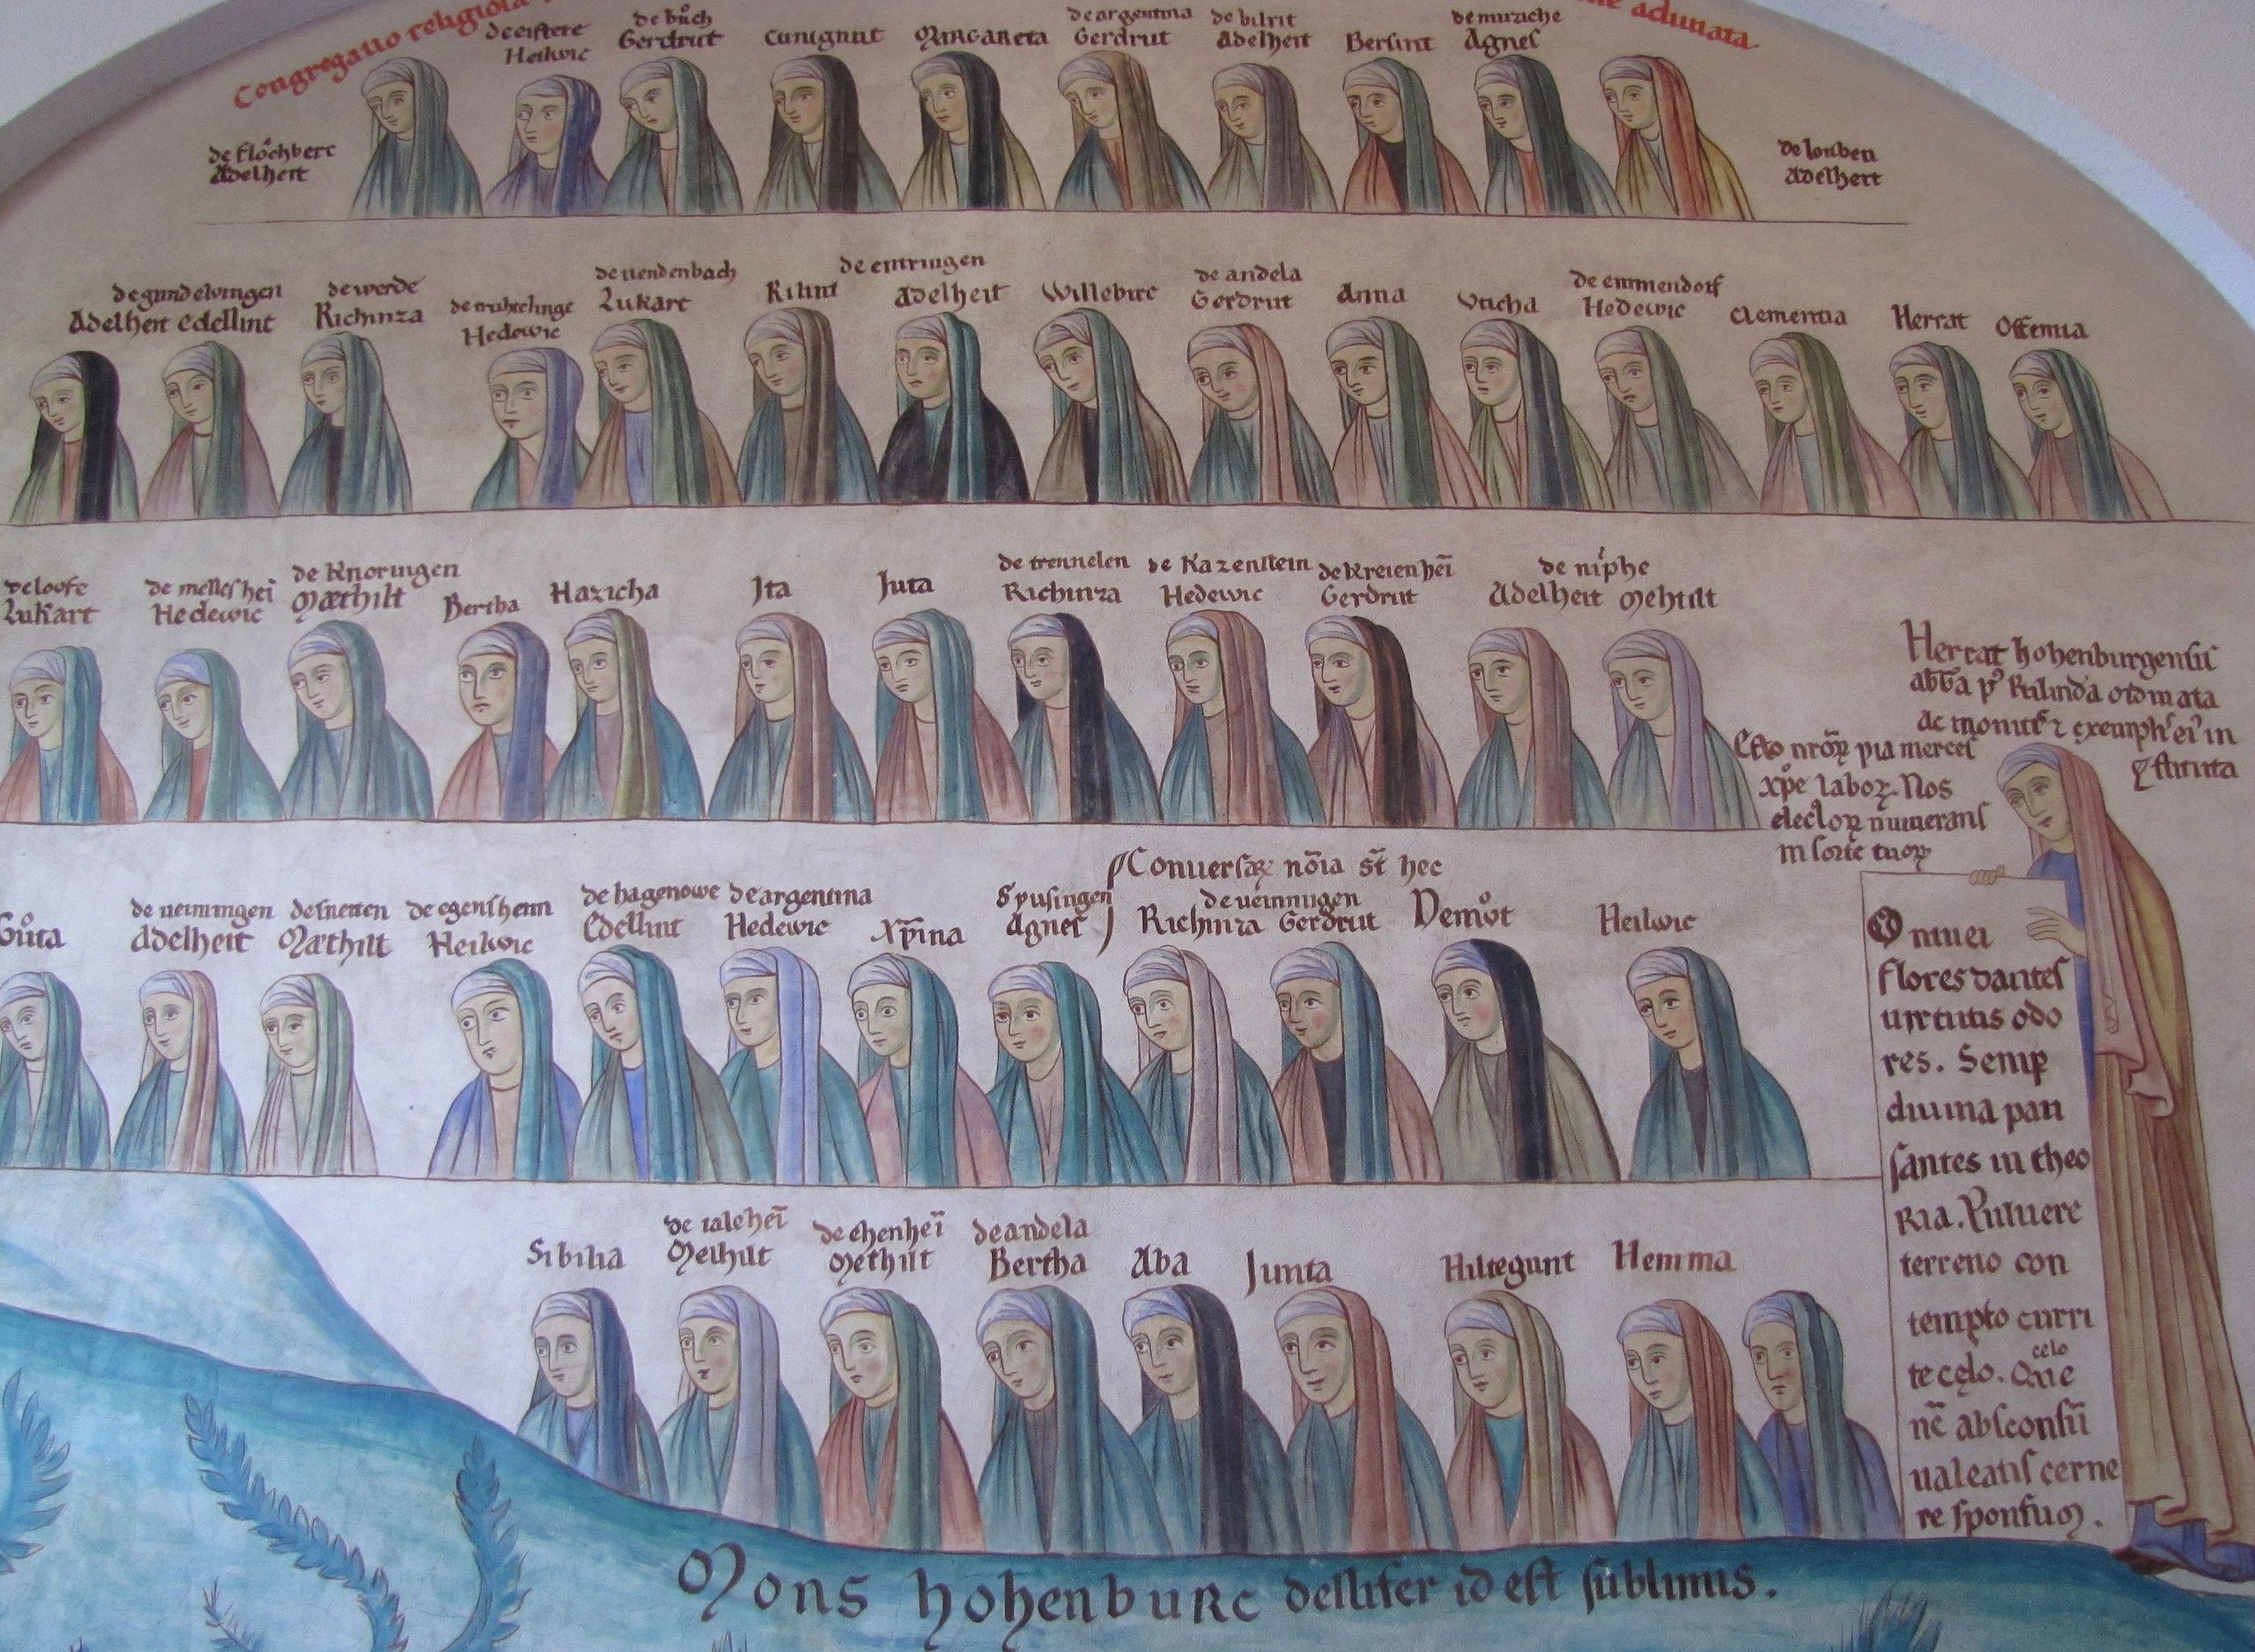 Congregatio religiosa
adunata
de eistete
Heilwic
de bůch
Gerdrut
Cunignut
Margareta
de argentina
Gerdrut
de bilrit
Adelheit
Bersint
Agnes
de flöchberc
Adelheit
de louben
Adelheit
de gundelvingen
Adelheit Edellint
de werde
Richinza
Hedewic
de uendenbach
Lukart
Rilint
de entringen
Adelheit
Willebirc
de andela
Gerdrut
Anna
Vticha
de emmendorf
Hedewic
Clementia
Herrat
Offemia
de loofe
Lukart
de mellesheī
Hedewic
de Knoringen
Mæthilt
Bertha
Hazicha
Ita
Juta
de trennelen
Richinza
de Kazenstein
Hedewic
de Kreienheī
Gerdrut
de niphe
Adelheit Mehtilt
Herrat hohenburgensis
abb̄a p' Rilinda ordinata
ac monit' ⁊ exemplis ei' in
stituta
Esto nrōꝝ pia merces
xp̄e laboꝝ. Nos
electoꝝ numerans
in sorte tuoꝝ
Gůta
de ueimingen
Adelheit
de snetten
Mæthilt
de egensheim
Heilwic
de hagenowe
Edellint
de argentina
Hedewic
Xp̄ina
Spusingen
Agnes
Conuersaꝝ nōia st̄ hec
de ueimingen
Richinza Gerdrut
Demůt
Heilwic
O nuiei
flores dantes
uirtutis odo
res. Semꝑ
diuina pau
santes in theo
ria. Puluere
terreno con
tempto curri
celo
te cęlo. Que
nc̄ absconsū
ualeatis cerne
re sponsum.
Sibilia
de ualeheī
Methilt
de ehenheī
Methilt
de andela
Bertha
Aba
Junta
Hiltegunt
Hemma
Mons hohenburc destifer id est sublimis.